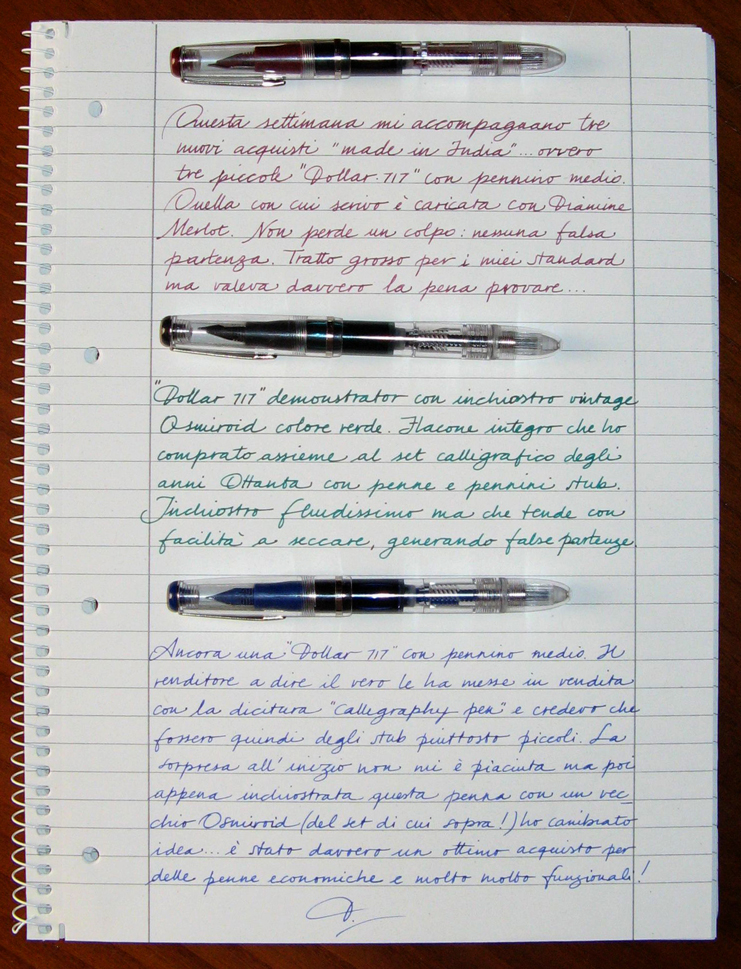 Questa settimana mi accompagnano tre
nuovi acquisti "made in India"... ovvero
tre piccole "Dollar 717" con pennino medio.
Quella con cui scrivo è caricata con Diamine
Merlot. Non perde un colpo: nessuna falsa
partenza. Tratto grosso per i miei standard
ma valeva davvero la pena provare...
"Dollar 717" demonstrator con inchiostro vintage
Osmiroid colore verde. Flacone integro che ho
comprato assieme al set calligrafico degli
anni Ottanta con penne e pennini stub.
Inchiostro fluidissimo ma che tende con
facilità a seccare, generando false partenze.
Ancora una "Dollar 717" con pennino medio. Il
venditore a dire il vero le ha messe in vendita
con la dicitura "Calligraphy pen" e credevo che
fossero quindi degli stub piuttosto piccoli. La
sorpresa all'inizio non mi è piaciuta ma poi
appena inchiostrata questa penna con un vec_
chio Osmiroid (del set di cui sopra!) ho cambiato
idea... è stato davvero un ottimo acquisto per
delle penne economiche e molto molto funzionali!